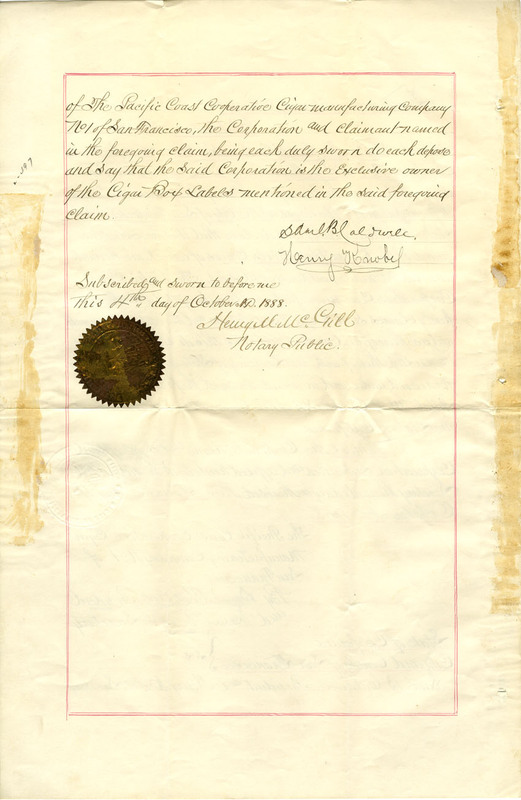 of The Pacific Coast Cooperative Cigar manufacturing Company
No 1 of San Francisco, the Corporation and Claimant named
in the foregoing claim, being each duly sworn do each depose
and Say that the Said Corporation is the Exclusive owner
of the Cigar Box Labels mentioned in the said foregoing
claim.
Saml. B. Caldwell.
Henry Knobel
Subscribed and sworn to before me
This 4th day of October A.D. 1888.
Henry M. McGill
Notary Public.